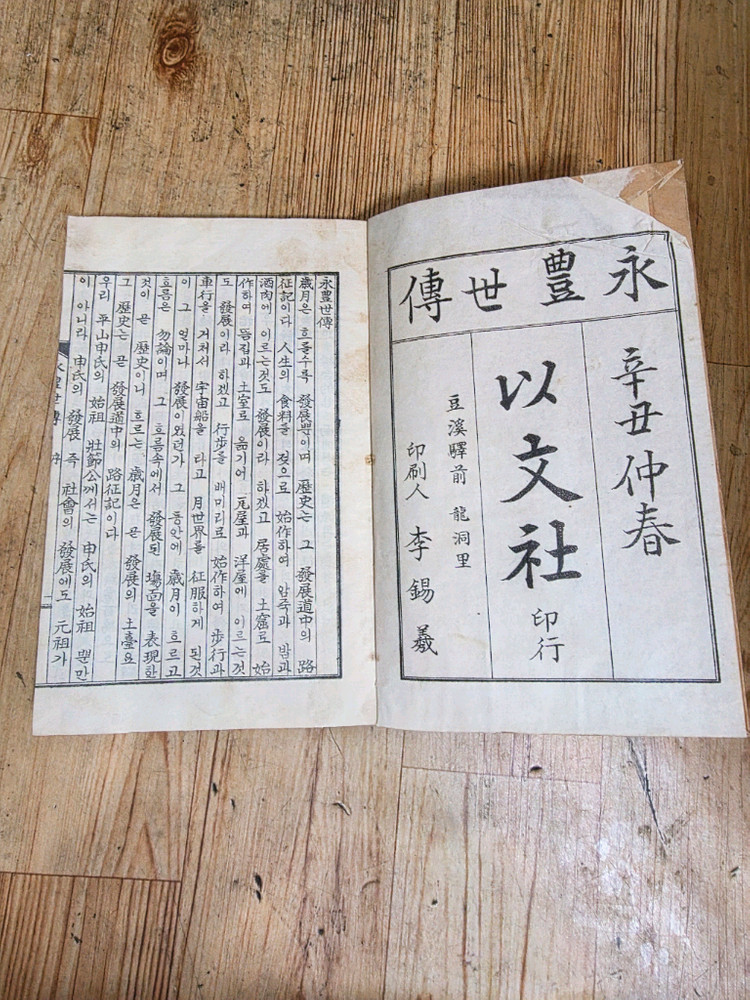 永豐世傳
辛丑仲春
以文社 印行
豆溪驛前 龍洞里
印刷人 李錫羲
永豐世傳
歲月은 흐를수록 發展뿐이며 歷史는 그 發展道中의 路
征記이다 人生의 食料를 젖으로 始作하여 암죽과 밤과
酒肉에 이르는것도 發展이라 하겠고 居處를 土窟로 始
作하여 뜸집과 土室로 옮기어 瓦屋과 洋屋에 이르는것
도 發展이라 하겠고 行步를 배미리로 始作하여 步行과
車行을 거쳐서 宇宙船을 타고 月世界를 征服하게 된것
이 그 얼마나 發展이었던가 그 동안에 歲月이 흐르고
흐름은 勿論이며 그 흐름속에서 發展된 場面을 表現한
것이 곧 歷史이니 흐르는 歲月은 곧 發展의 土臺요
그 歷史는 곧 發展道中의 路征記이다
우리 平山申氏의 始祖 壯節公께서는 申氏의 始祖 뿐만
이 아니라 申氏의 發展 즉 社會의 發展에도 元祖가
永豐世傳 序 一